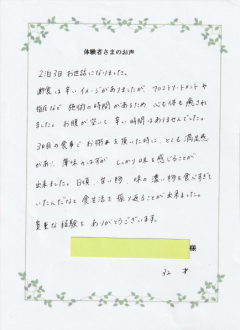 体験者さまのお声
2泊3日お世話になりました。
断食は辛いイメージがありましたが、アロマトリートメントや
指圧など 施術の時間があるため 心も体も癒され
ました。お腹が空いて 辛い時間はありませんでした。
3日目の食事で お粥を頂いた時に、とても満足感
があり、薄味のはずが しっかり味を感じることが
出来ました。日頃、甘い物、味の濃い物を食べすぎて
いたんだなと 食生活を振り返ることが出来ました。
貴重な経験を ありがとうございます。
様
32 才